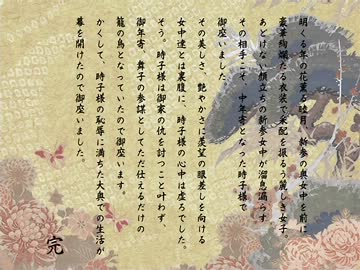 明くる年の花薫る皐月、新参の奥女中を前に
豪華絢爛たる衣装で采配を振るう麗しき女子。
あどけない顔立ちの新参女中が溜息漏らす
その相手こそ、中年寄となった時子様で
御座いました。
その美しさ、艶やかさに羨望の眼差しを向ける
女中達とは裏腹に、時子様の心中は虚ろでした。
そう。時子様は御家の仇を討つこと叶わず、
御年寄、舞子の参謀としてただ仕えるだけの
籠の鳥となっていたので御座います。
かくして、時子様の恥辱に満ちた大奥での生活が
幕を開けたので御座いました。
完